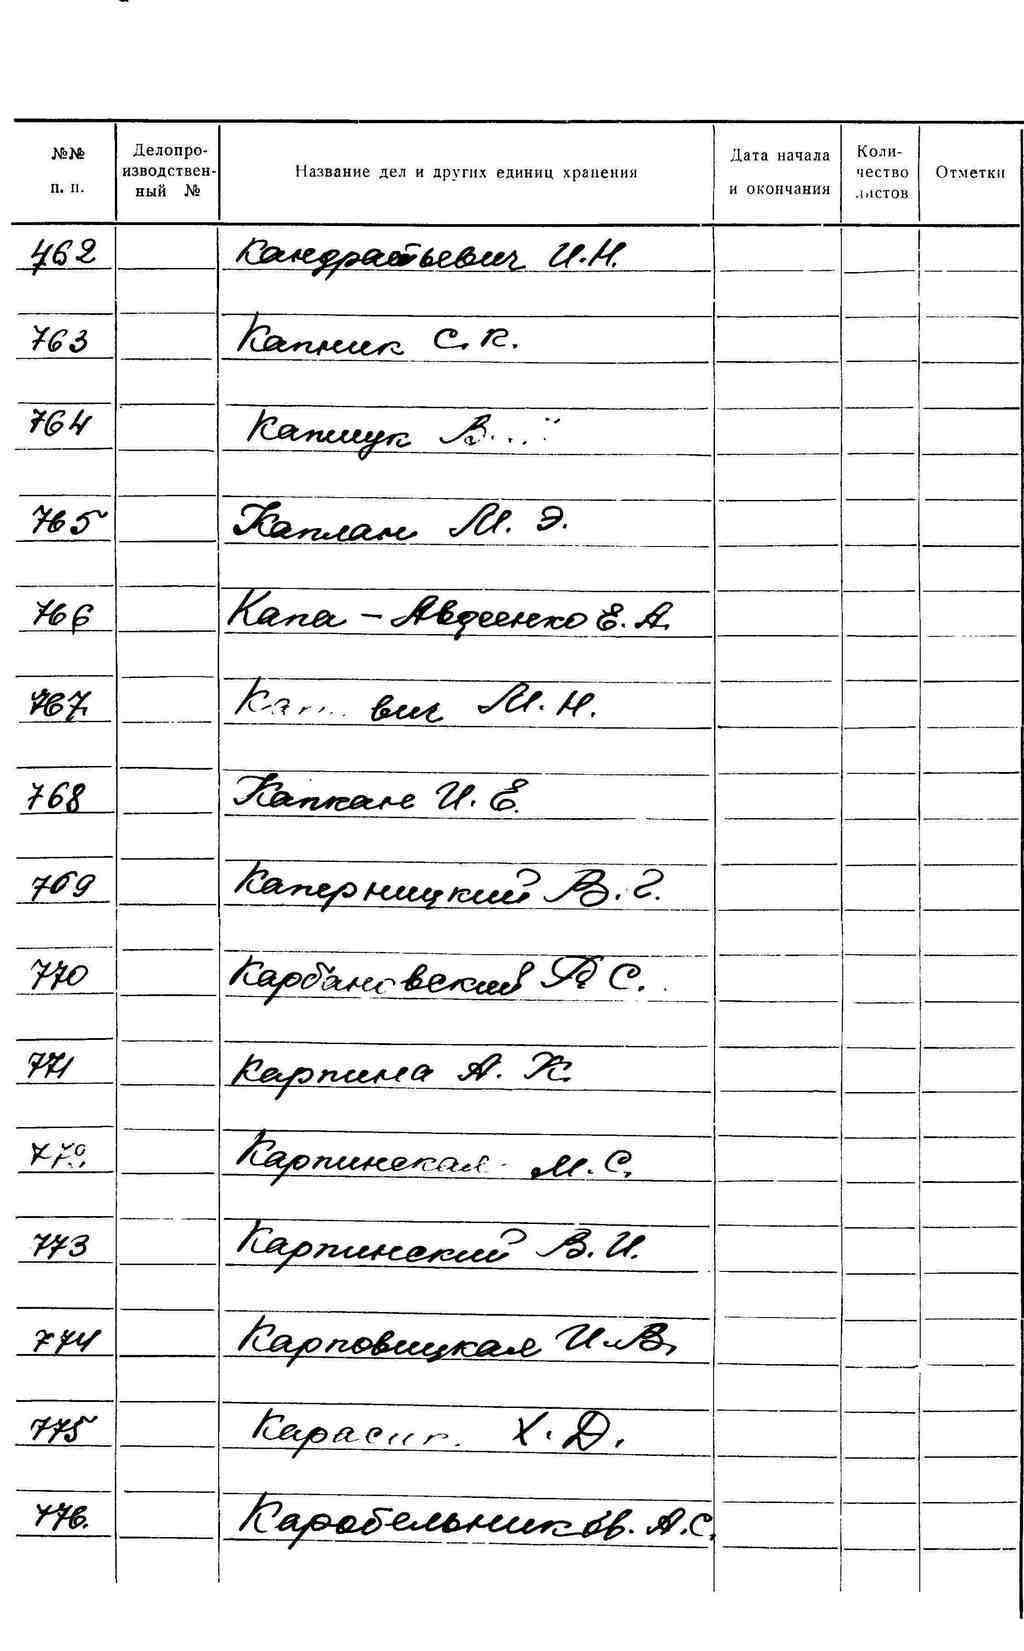 №№ п. п. Делопроизводственный № Название дел и других единиц хранения Дата начала и окончания Количество листов Отметки
762 Кандратьевич И.Н.
763 Капник С. К.
764 Капшук В.
765 Каплан М. Э.
766 Капа – Авдеенко Е. А.
767. М. Н.
768 Капкане И. Е.
769 Каперницкий В. Г.
770 Карбановский П С.
771 Карпина А. К.
Карпинская М. С.
773 Карпинский В. И.
774 Карповицкая И. В.
775 Х. Д.
776. Каробельников. А. С.